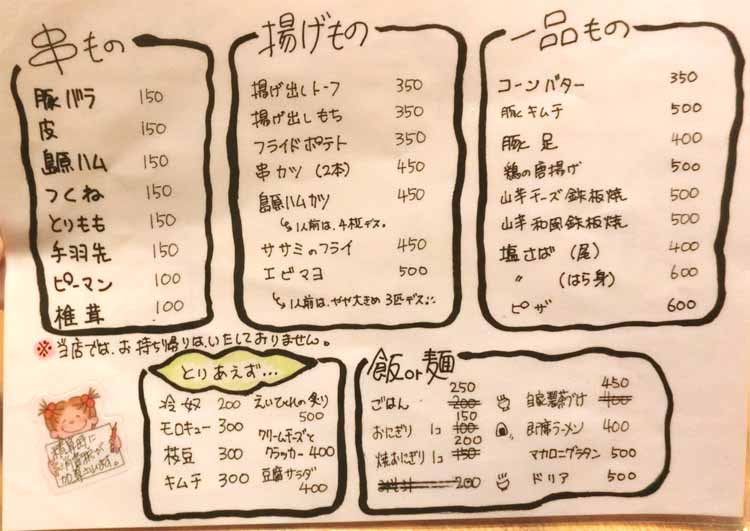 串もの
豚バラ 150
皮 150
島原ハム 150
つくね 150
とりもも 150
手羽先 150
ピーマン 100
椎茸 100
揚げもの
揚げ出しトーフ 350
揚げ出しもち 350
フライドポテト 350
串カツ (2本) 450
島原ハムカツ 450
↳1人前は、4枚デス。
ササミのフライ 450
エビマヨ 500
↳1人前は、やや大きめ 3匹デス
一品もの
コーンバター 350
豚キムチ 500
豚足 400
鶏の唐揚げ 500
山芋チーズ鉄板焼 500
山芋和風鉄板焼 500
塩さば (尾) 400
〃 (はら身) 600
ピザ 600
※当店では、お持ち帰りは、いたしておりません。
とりあえず…
冷奴 200
モロキュー 300
枝豆 300
キムチ 300
えいひれの炙り
500
クリームチーズと
クラッカー 400
豆腐サラダ
400
飯or麺
ごはん 200 250
おにぎり 1コ 100 150
焼おにぎり 1コ 150 200
みそ汁 200
自家製茶づけ 400 450
即席ラーメン 400
マカロニグラタン 500
ドリア 500
精算時に
別途消費税が
加算されます。